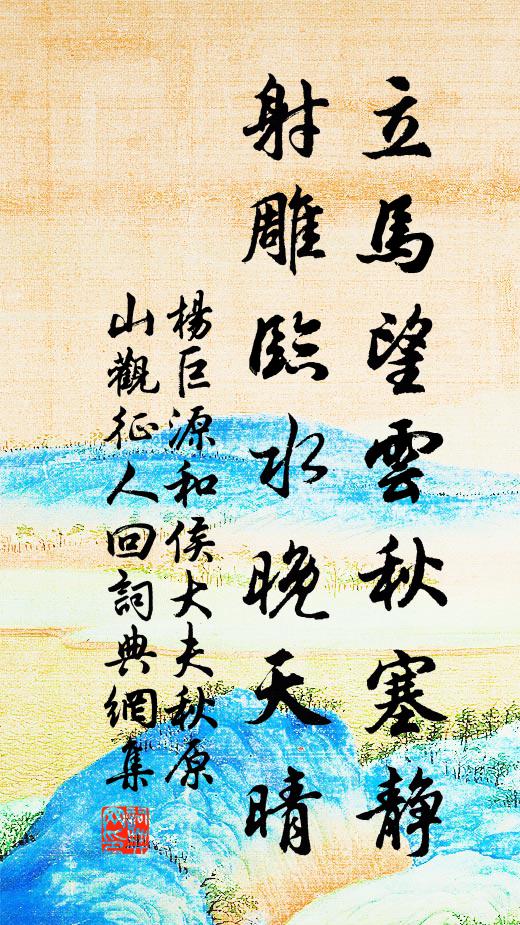 立馬望雲秋塞靜
射雕臨水晚天晴
楊巨源和侯大夫秋原
山觀征人回詞典網集